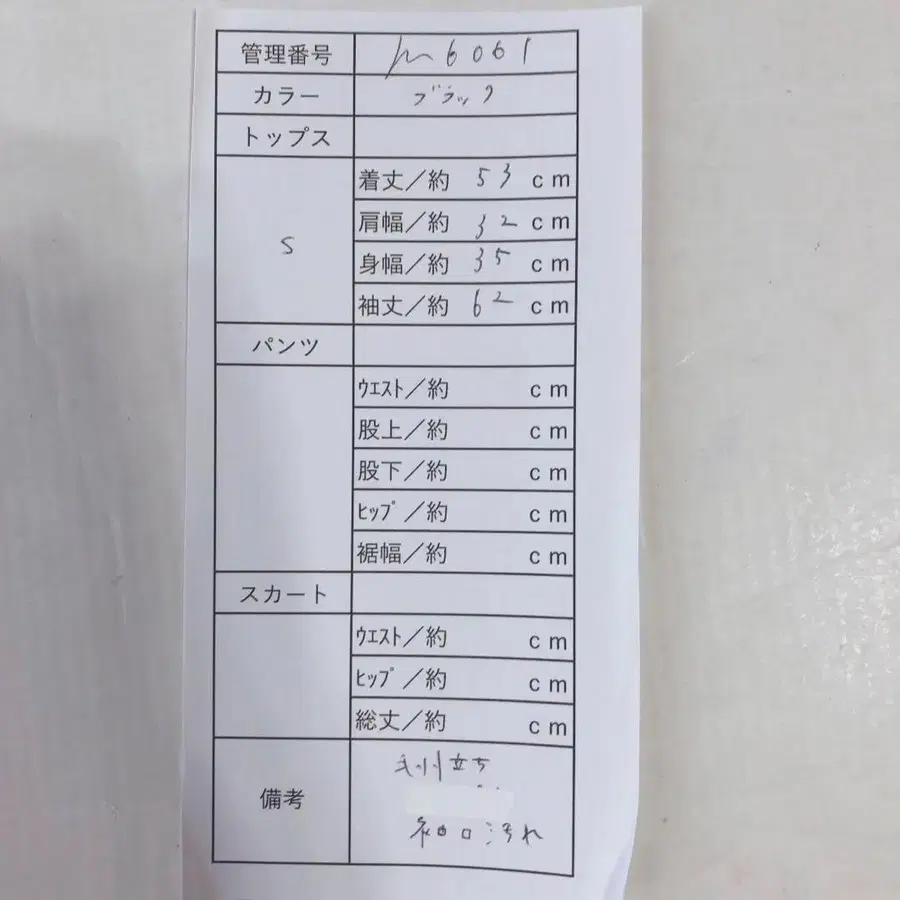 管理番号 m6061
カラー ブラック
トップス
S
着丈／約 53 cm
肩幅／約 32 cm
身幅／約 35 cm
袖丈／約 62 cm
パンツ
ｳｴｽﾄ／約 cm
股上／約 cm
股下／約 cm
ﾋｯﾌﾟ／約 cm
裾幅／約 cm
スカート
ｳｴｽﾄ／約 cm
ﾋｯﾌﾟ／約 cm
総丈／約 cm
備考
毛羽立ち
袖口汚れ